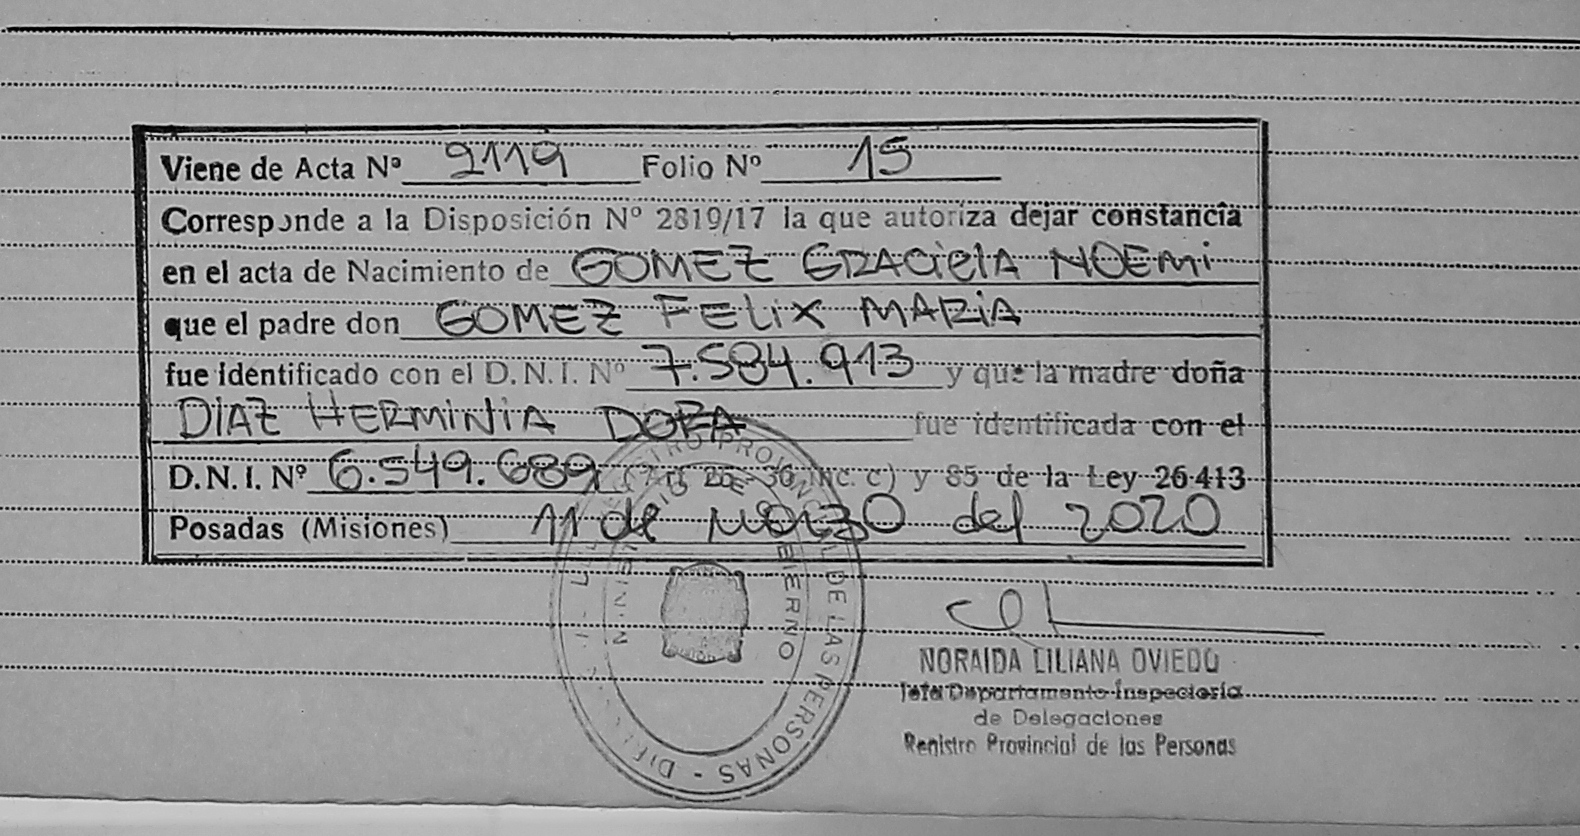 Viene de Acta Nº 2119 Folio Nº 15
Corresponde a la Disposición Nº 2819/17 la que autoriza dejar constancia
en el acta de Nacimiento de GOMEZ GRACIELA NOEMI
que el padre don GOMEZ FELIX MARIA
fue identificado con el D.N.I. Nº 7.584.913 y que la madre doña
DIAZ HERMINIA DORA fue identificada con el
D.N.I. Nº 6.549.689 (Art. 36 inc. c) y 85 de la Ley 26.413
Posadas (Misiones) 11 de Marzo del 2020
PROVINCIAL DE LAS PERSONAS
GOBIERNO
NORAIDA LILIANA OVIEDO
Jefa Departamento Inspectoría
de Delegaciones
Registro Provincial de las Personas